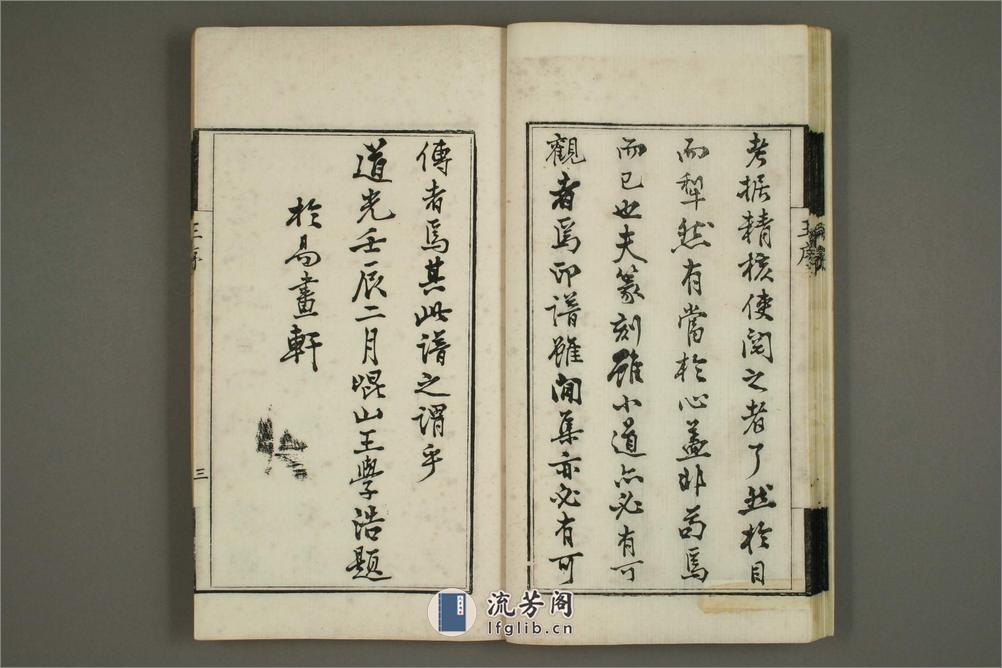 考据精核使閱之者了然於目
而犁然有當於心蓋非苟焉
而已也夫篆刻雖小道亦必有可
觀者焉印譜雖閒集亦必有可
傳者焉其此譜之謂乎
道光壬辰二月崐山王學浩題
於易畫軒
王序
三
流芳阁
lfglib.cn